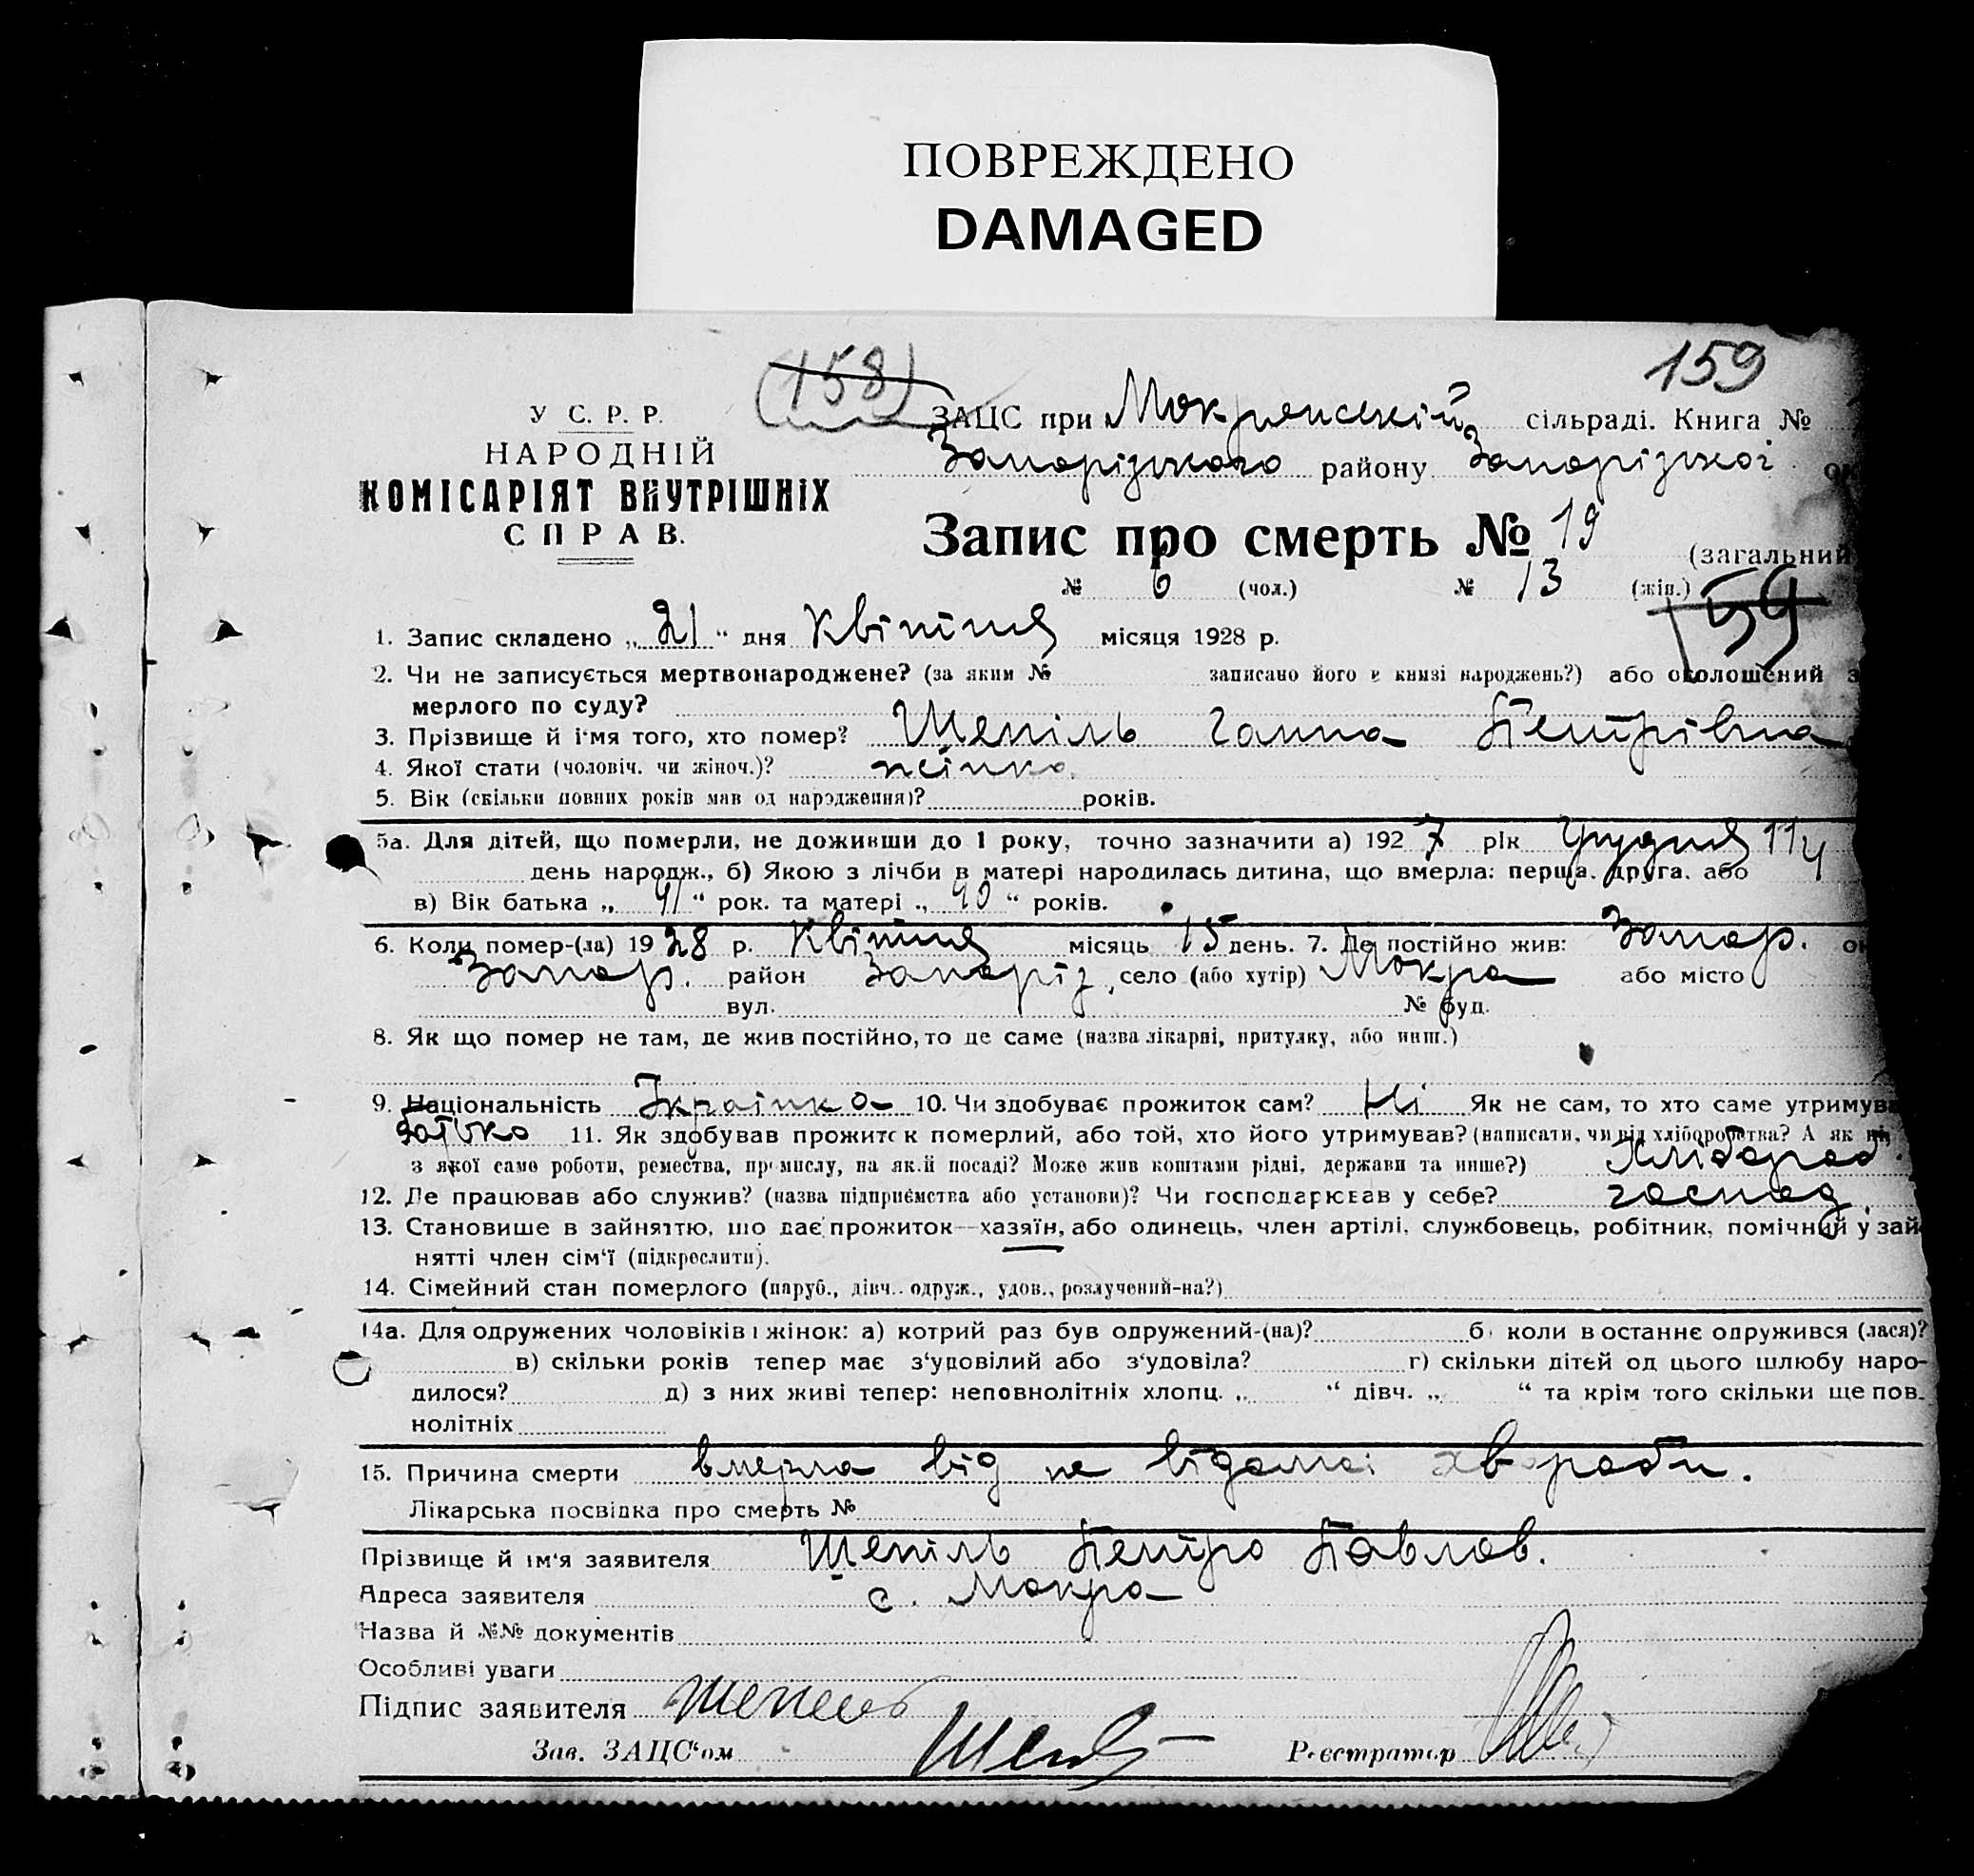 ПОВРЕЖДЕНО
DAMAGED
(158)
159
У С. Р. Р.
НАРОДНІЙ
КОМІСАРІЯТ ВНУТРІШНІХ
СПРАВ.
ЗАЦС при Мокрянській сільраді. Книга №
Запорізького району Запорізької ок
Запис про смерть № 19 (загальний
№ 6 (чол.) № 13 (жін.)
159
1. Запис складено „ 21 “ дня Квітня місяця 1928 р.
2. Чи не записується мертвонароджене? (за яким № записано його в книзі народжень?) або оголошений з
мерлого по суду?
3. Прізвище й ім'я того, хто помер? Шепіль Ганна Петрівна
4. Якої стати (чоловіч. чи жіноч.)? жінка
5. Вік (скільки повних років мав од народження)? років.
5а. Для дітей, що померли, не доживши до 1 року, точно зазначити а) 192 7 рік Грудня 11
день народж., б) Якою з лічби в матері народилась дитина, що вмерла: перша, друга, або 4
в) Вік батька „ 41 “ рок. та матері „ 40 “ років.
6. Коли помер-(ла) 19 28 р. Квітня місяць 15 день. 7. Де постійно жив: Запор. ок
Запор. район Запоріз. село (або хутір) Мокра або місто
вул. № буд.
8. Як що помер не там, де жив постійно, то де саме (назва лікарні, притулку, або инш.)
9. Національність Українка 10. Чи здобуває прожиток сам? Ні Як не сам, то хто саме утримува
батько 11. Як здобував прожиток померлий, або той, хто його утримував? (написати, чи від хліборобства? А як ні,
з якої саме роботи, ремества, промислу, на якій посаді? Може жив коштами рідні, держави та инше?) Хлібороб.
12. Де працював або служив? (назва підприємства або установи)? Чи господарював у себе? господ.
13. Становище в зайняттю, що дає прожиток—хазяїн, або одинець, член артілі, службовець, робітник, помічний у зай
нятті член сім'ї (підкреслити).
14. Сімейний стан померлого (паруб., дівч., одруж., удов., розлучений-на?)
14а. Для одружених чоловіків і жінок: а) котрий раз був одружений-(на)? б) коли в останнє одружився (лася)?
в) скільки років тепер має з'удовілий або з'удовіла? г) скільки дітей од цього шлюбу наро-
дилося? д) з них живі тепер: неповнолітніх хлопц. „ “ дівч. „ “ та крім того скільки ще пов-
нолітніх
15. Причина смерти вмерла від не відомоі хвороби.
Лікарська посвідка про смерть №
Прізвище й ім'я заявителя Шепіль Петро Павлов.
Адреса заявителя с. Мокра
Назва й №№ документів
Особливі уваги
Підпис заявителя Шепель
Зав. ЗАЦС'ом
Реєстратор